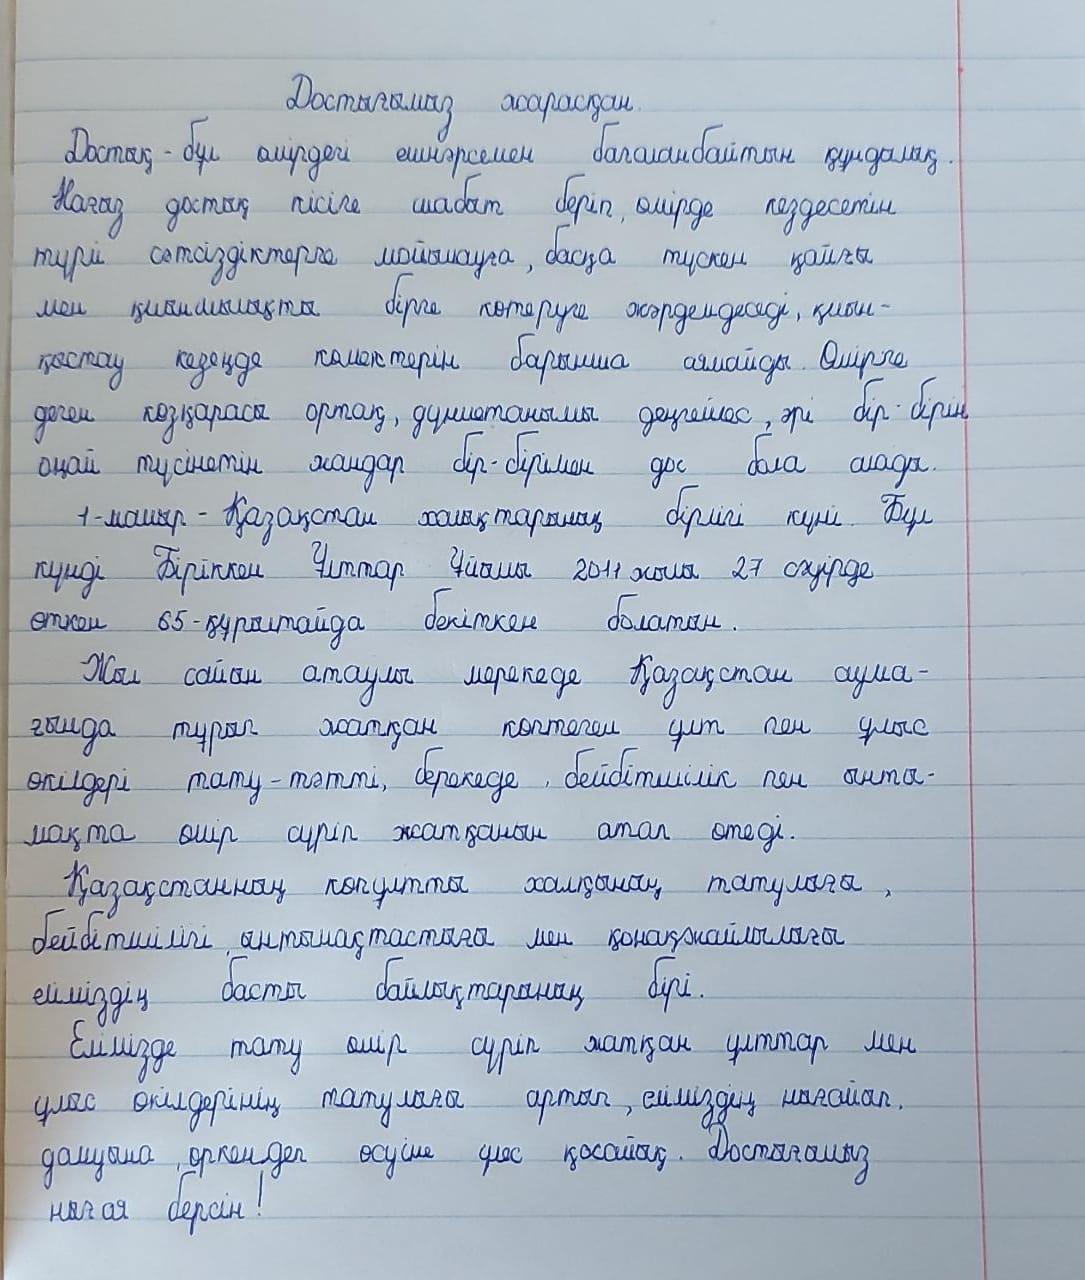 Достығымыз жарасқан.
Достық - бұл өмірдегі ешнәрсемен бағаланбайтын құндылық.
Нағыз достық кісіге шабыт беріп, өмірде кездесетін
түрлі сәтсіздіктерге мойымауға, басқа түскен қайғы
мен қиыншылықты бірге көтеруге жәрдемдеседі, қиын-
қыстау кезеңде көмектерін барынша аямайды. Өмірге
деген көзқарасы ортақ, дүниетанымы деңгейлес, әрі бір-бірін
оңай түсінетін жандар бір-бірімен дос бола алады.
1-мамыр - Қазақстан халықтарының бірлігі күні. Бұл
күнді Біріккен Ұлттар Ұйымы 2011 жылы 27 сәуірде
өткен 65-құрылтайда бекіткен болатын.
Жыл сайын атаулы мерекеде Қазақстан аума-
ғында тұрып жатқан көптеген ұлт пен ұлыс
өкілдері тату-тәтті, берекеде, бейбітшілік пен ынты-
мақта өмір сүріп жатқанын атап өтеді.
Қазақстанның көпұлтты халқының татулығы,
бейбітшілігі, ынтымақтастығы мен қонақжайлылығы
еліміздің басты байлықтарының бірі.
Елімізде тату өмір сүріп жатқан ұлттар мен
ұлыс өкілдерінің татулығы артып, еліміздің нығайып,
дамуына, өркендеп өсуіне үлес қосайық. Достығымыз
нығая берсін!